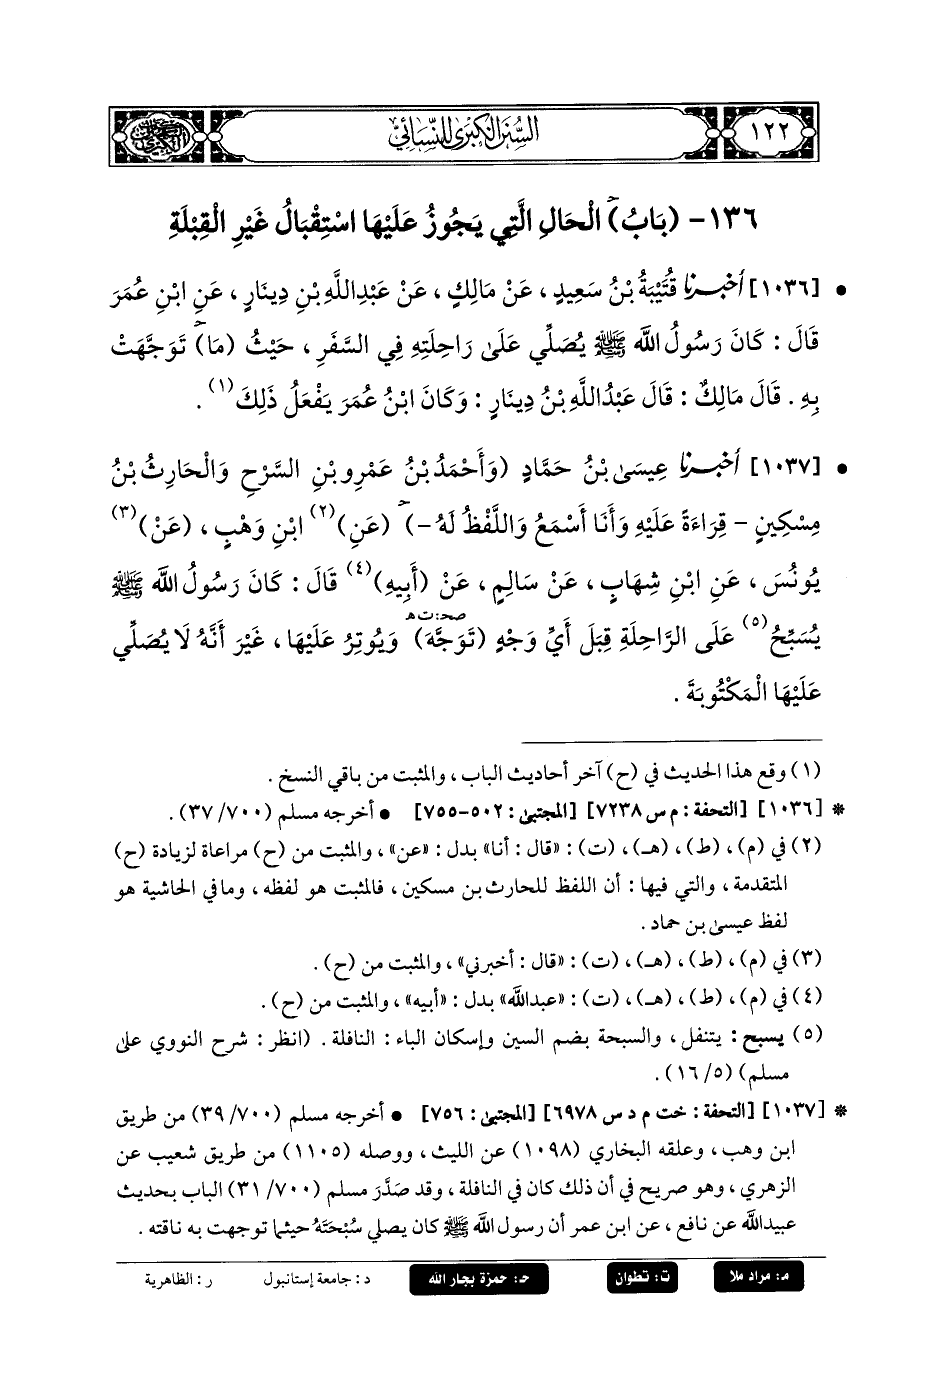 ١٢٢
السُّنَنُ الْكُبْرَىٰ لِلنَّسَائِيِّ
١٣٦- (بَابُ)ح الْحَالِ الَّتِي يَجُوزُ عَلَيْهَا اسْتِقْبَالُ غَيْرِ الْقِبْلَةِ
• [١٠٣٦] أَخْبَرَنَا قُتَيْبَةُ بْنُ سَعِيدٍ، عَنْ مَالِكٍ، عَنْ عَبْدِاللَّهِ بْنِ دِينَارٍ، عَنِ ابْنِ عُمَرَ
قَالَ: كَانَ رَسُولُ اللَّه ﷺ يُصَلِّي عَلَىٰ رَاحِلَتِهِ فِي السَّفَرِ، حَيْثُ (مَا)ح تَوَجَّهَتْ
بِهِ. قَالَ مَالِكٌ: قَالَ عَبْدُاللَّهِ بْنُ دِينَارٍ: وَكَانَ ابْنُ عُمَرَ يَفْعَلُ ذَلِكَ(١).
• [١٠٣٧] أَخْبَرَنَا عِيسَىٰ بْنُ حَمَّادٍ (وَأَحْمَدُ بْنُ عَمْرِو بْنِ السَّرْحِ وَالْحَارِثُ بْنُ
مِسْكِينٍ - قِرَاءَةً عَلَيْهِ وَأَنَا أَسْمَعُ وَاللَّفْظُ لَهُ -)ح (عَنِ)(٢) ابْنِ وَهْبٍ، (عَنْ)(٣)
يُونُسَ، عَنِ ابْنِ شِهَابٍ، عَنْ سَالِمٍ، عَنْ (أَبِيهِ)(٤) قَالَ: كَانَ رَسُولُ اللَّه ﷺ
يُسَبِّحُ(٥) عَلَى الرَّاحِلَةِ قِبَلَ أَيِّ وَجْهٍ (تَوَجَّهَ)صحـ: ت هـ وَيُوتِرُ عَلَيْهَا، غَيْرَ أَنَّهُ لَا يُصَلِّي
عَلَيْهَا الْمَكْتُوبَةَ.
(١) وقع هذا الحديث في (ح) آخر أحاديث الباب، والمثبت من باقي النسخ.
* [١٠٣٦] [التحفة: م س ٧٢٣٨] [المجتبى: ٥٠٢-٧٥٥] • أخرجه مسلم (٧٠٠/ ٣٧).
(٢) في (م)، (ط)، (هـ)، (ت): «قال: أنا» بدل: «عن»، والمثبت من (ح) مراعاة لزيادة (ح)
المتقدمة، والتي فيها: أن اللفظ للحارث بن مسكين، فالمثبت هو لفظه، وما في الحاشية هو
لفظ عيسى بن حماد.
(٣) في (م)، (ط)، (هـ)، (ت): «قال: أخبرني»، والمثبت من (ح).
(٤) في (م)، (ط)، (هـ)، (ت): «عبدالله» بدل: «أبيه»، والمثبت من (ح).
(٥) يسبح: يتنفل، والسبحة بضم السين وإسكان الباء: النافلة. (انظر: شرح النووي على
مسلم) (٥/ ١٦).
* [١٠٣٧] [التحفة: خت م د س ٦٩٧٨] [المجتبى: ٧٥٦] • أخرجه مسلم (٧٠٠/ ٣٩) من طريق
ابن وهب، وعلقه البخاري (١٠٩٨) عن الليث، ووصله (١١٠٥) من طريق شعيب عن
الزهري، وهو صريح في أن ذلك كان في النافلة، وقد صَدَّرَ مسلم (٧٠٠/ ٣١) الباب بحديث
عبيدالله عن نافع، عن ابن عمر أن رسول اللَّه ﷺ كان يصلي سُبْحَتَهُ حيثما توجهت به ناقته.
مـ: مراد ملا ت: تطوان حـ: حمزة بجار الله د: جامعة إستانبول ر: الظاهرية